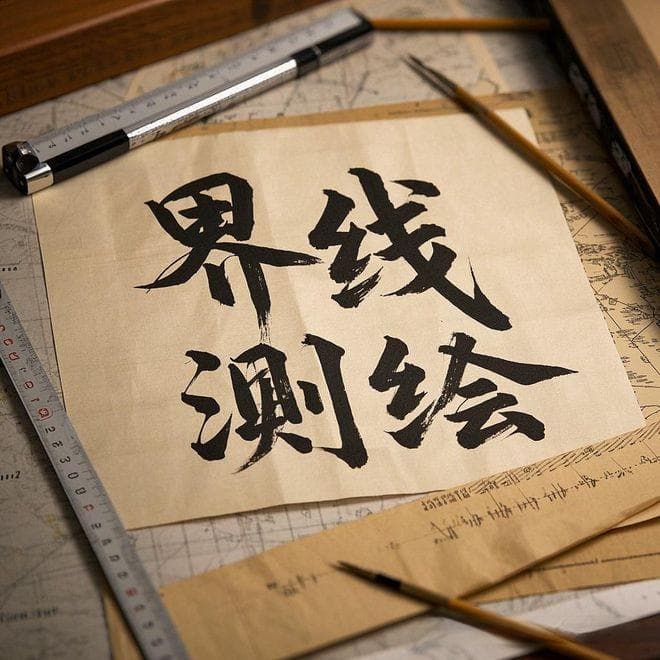 界线
测绘